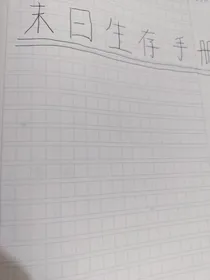 末日生存手册